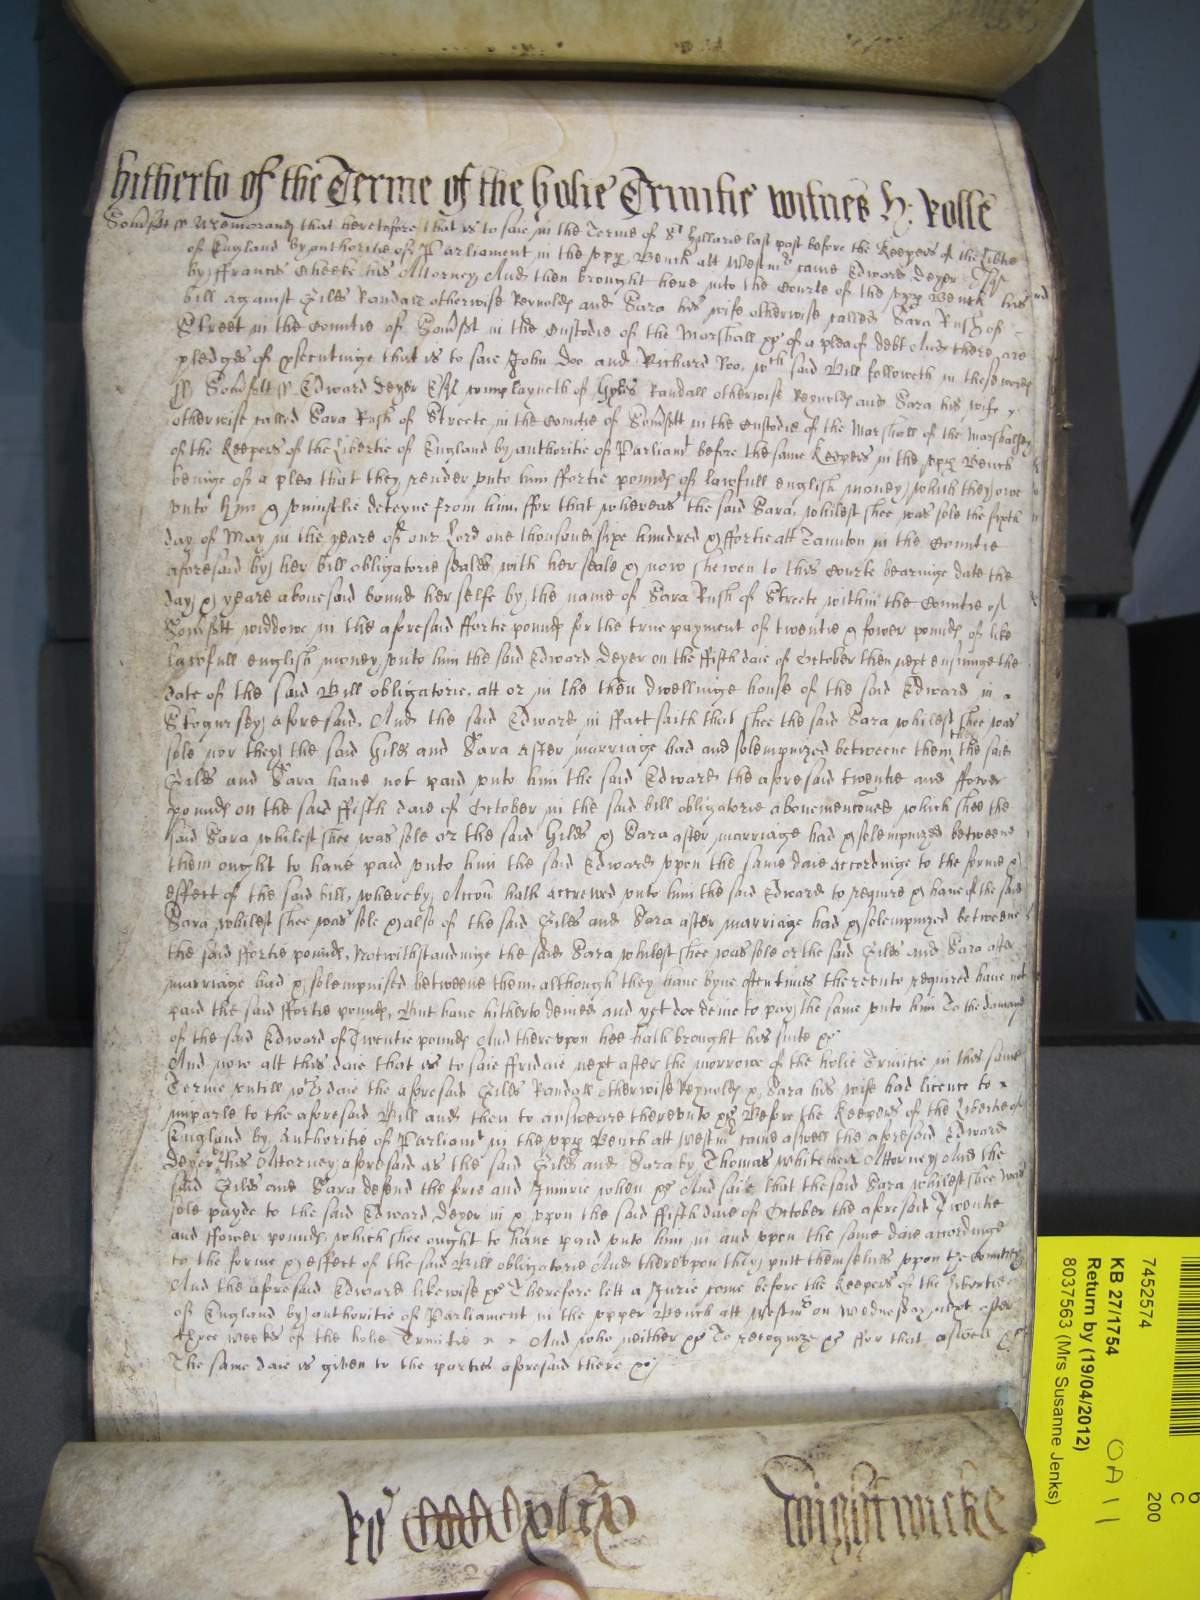 hitherto of the Terme of the holie Trinitie witnes H: Rolle
Somsett ss Memorand that heretofore that is to saie in the Terme of St Hillarie last past before the Keepers of the Libtie
of England by authoritie of Parliament in the upp Bench att Westmr came Edward Deyer
by ffrancis Cheeke his Attorney And then brought here into the Courte of the upp Bench his
bill against Giles Randall otherwise Reynolds and Sara his wife otherwise called Sara Rush of
Streete in the Countie of Somsett in the Custodie of the Marshall &c of a plea of debt And there are
pledges of psecutinge that is to saie John Doo and Richard Roo, wch said Bill followeth in these words
ss Somsett ss Edward Deyer complayneth of Gyles Randall otherwise Reynolds and Sara his wife
otherwise called Sara Rush of Streete in the Countie of Somsett in the Custodie of the Marshall of the Marshalsey
of the Keepers of the Libertie of England by authoritie of Parliamt before the same Keepers in the upp Bench
beinge of a plea that they render unto him ffortie pounds of lawfull english money which they owe
unto him & uniustlie deteyne from him, ffor that whereas the said Sara, whilest shee was sole the sixth
day of May in the yeare of our Lord one thousand sixe hundred & ffortie att Taunton in the Countie
aforesaid by her bill obligatorie sealed with her seale & now shewen to this Courte bearinge date the
day & yeare abovesaid bound herselfe by the name of Sara Rush of Streete within the Countie of
Somsett widdowe in the aforesaid ffortie pounds for the true payment of twentie & fower pounds of like
lawfull english money unto him the said Edward Deyer on the ffifth daie of October then next ensuinge the
date of the said Bill obligatorie, att or in the then dwellinge house of the said Edward in
Stogursey aforesaid, And the said Edward in ffact saith that shee the said Sara whilest shee was
sole nor they the said Giles and Sara after marriage had and solempnized betweene them the said
Giles and Sara have not paid unto him the said Edward the aforesaid twentie and ffower
pounds on the said ffifth daie of October in the said bill obligatorie abovementoned which shee the
said Sara whilest shee was sole or the said Giles & Sara after marriage had & solempnized betweene
them ought to have paid unto him the said Edward upon the same daie accordinge to the forme &
effect of the said bill, whereby Accon hath accrewed unto him the said Edward to require & have of the said
Sara whilest shee was sole & also of the said Giles and Sara after marriage had & solempnized betweene
the said ffortie pounds, Notwithstandinge the said Sara whilest shee was sole or the said Giles and Sara after
marriage had & solempnised betweene them, although they have byne oftentimes thereunto required have not
paid the said ffortie pounds, But have hitherto denied and yet doe denie to pay the same unto him To the damage
of the said Edward of Twentie pounds And thereupon hee hath brought his suite &c
And now att this daie that is to saie ffridaie next after the morrowe of the holie Trinitie in this same
Terme untill wch daie the aforesaid Giles Randall otherwise Reynolds & Sara his wife had licence to
imparle to the aforesaid Bill and then to answeare thereunto &c Before the Keepers of the Libertie of
England by Authoritie of Parliamt in the upp Bench att Westmr came aswell the aforesaid Edward
Deyer by his Attorney aforesaid as the said Giles and Sara by Thomas Attorney And the
said Giles and Sara defend the force and Iniurie when &c And saie that the said Sara whilest shee was
sole payde to the said Edward Deyer in & upon the said ffifth daie of October the aforesaid Twentie
and ffower pounds, which shee ought to have paid unto him in and upon the same daie accordinge
to the forme & effect of the said Bill obligatorie And thereupon they putt themselves upon the Countrey
And the aforesaid Edward likewise &c Therefore lett a Jurie come before the Keepers of the Libertie
of England by authoritie of Parliament in the upper Bench att Westmr on Wednesday next after
three weekes of the holie Trinitie And who neither &c To recognize &c ffor that aswell &c
The same daie is given to the parties aforesaid there &c
Ro CCCCxlix Wightwicke
7452574
KB 27/1754
Return by (19/04/2012)
8037563 (Mrs Susanne Jenks)
OA 11
200
C
6